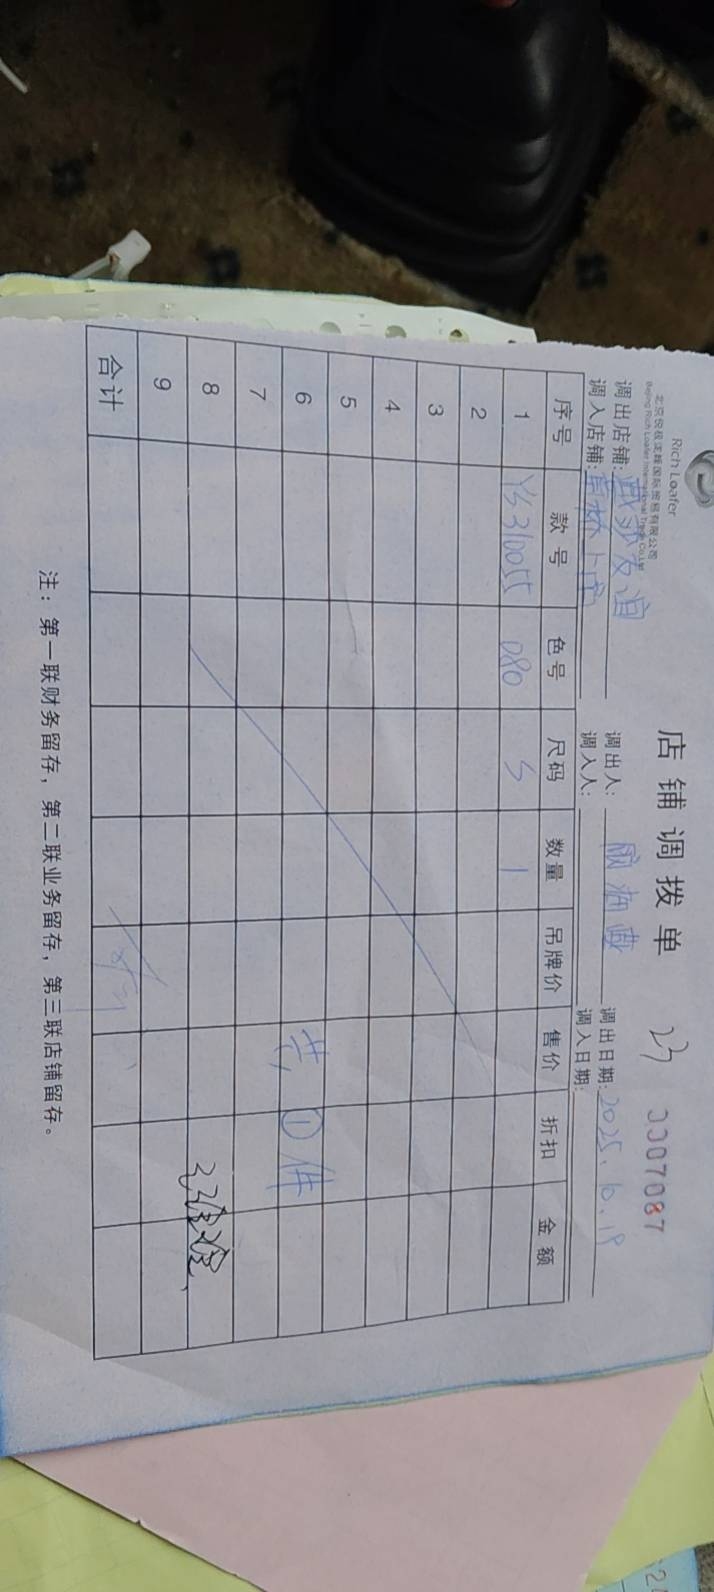 Rich Loafer
北京悦极泷峰国际贸易有限公司
Beijing Rich Loafer International Trade Co.Ltd
店铺调拨单
23
0007087
调出店铺: 友谊
调出人:
调出日期: 2025.10.19
调入店铺:
调入人:
调入日期:
序号 款号 色号 尺码 数量 吊牌价 售价 折扣 金额
1 YS310055 080 S 1
2
3
4
5
6 共①件
7
8
9
合计
注：第一联财务留存，第二联业务留存，第三联店铺留存。